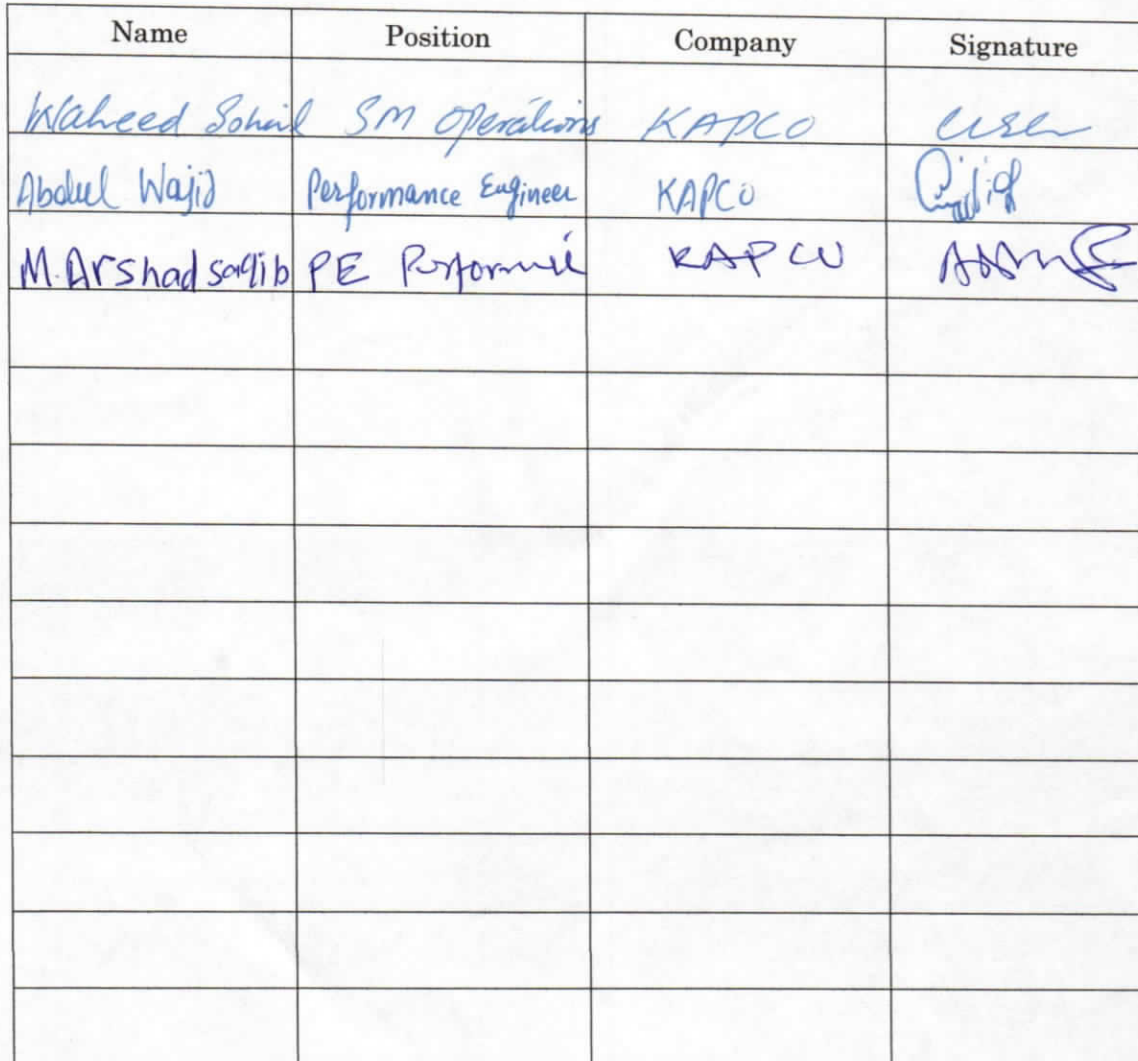 Name Position Company Signature
Waheed Sohail SM Operations KAPCO
Abdul Wajid Performance Engineer KAPCO
M. Arshad saqib PE KAPCO